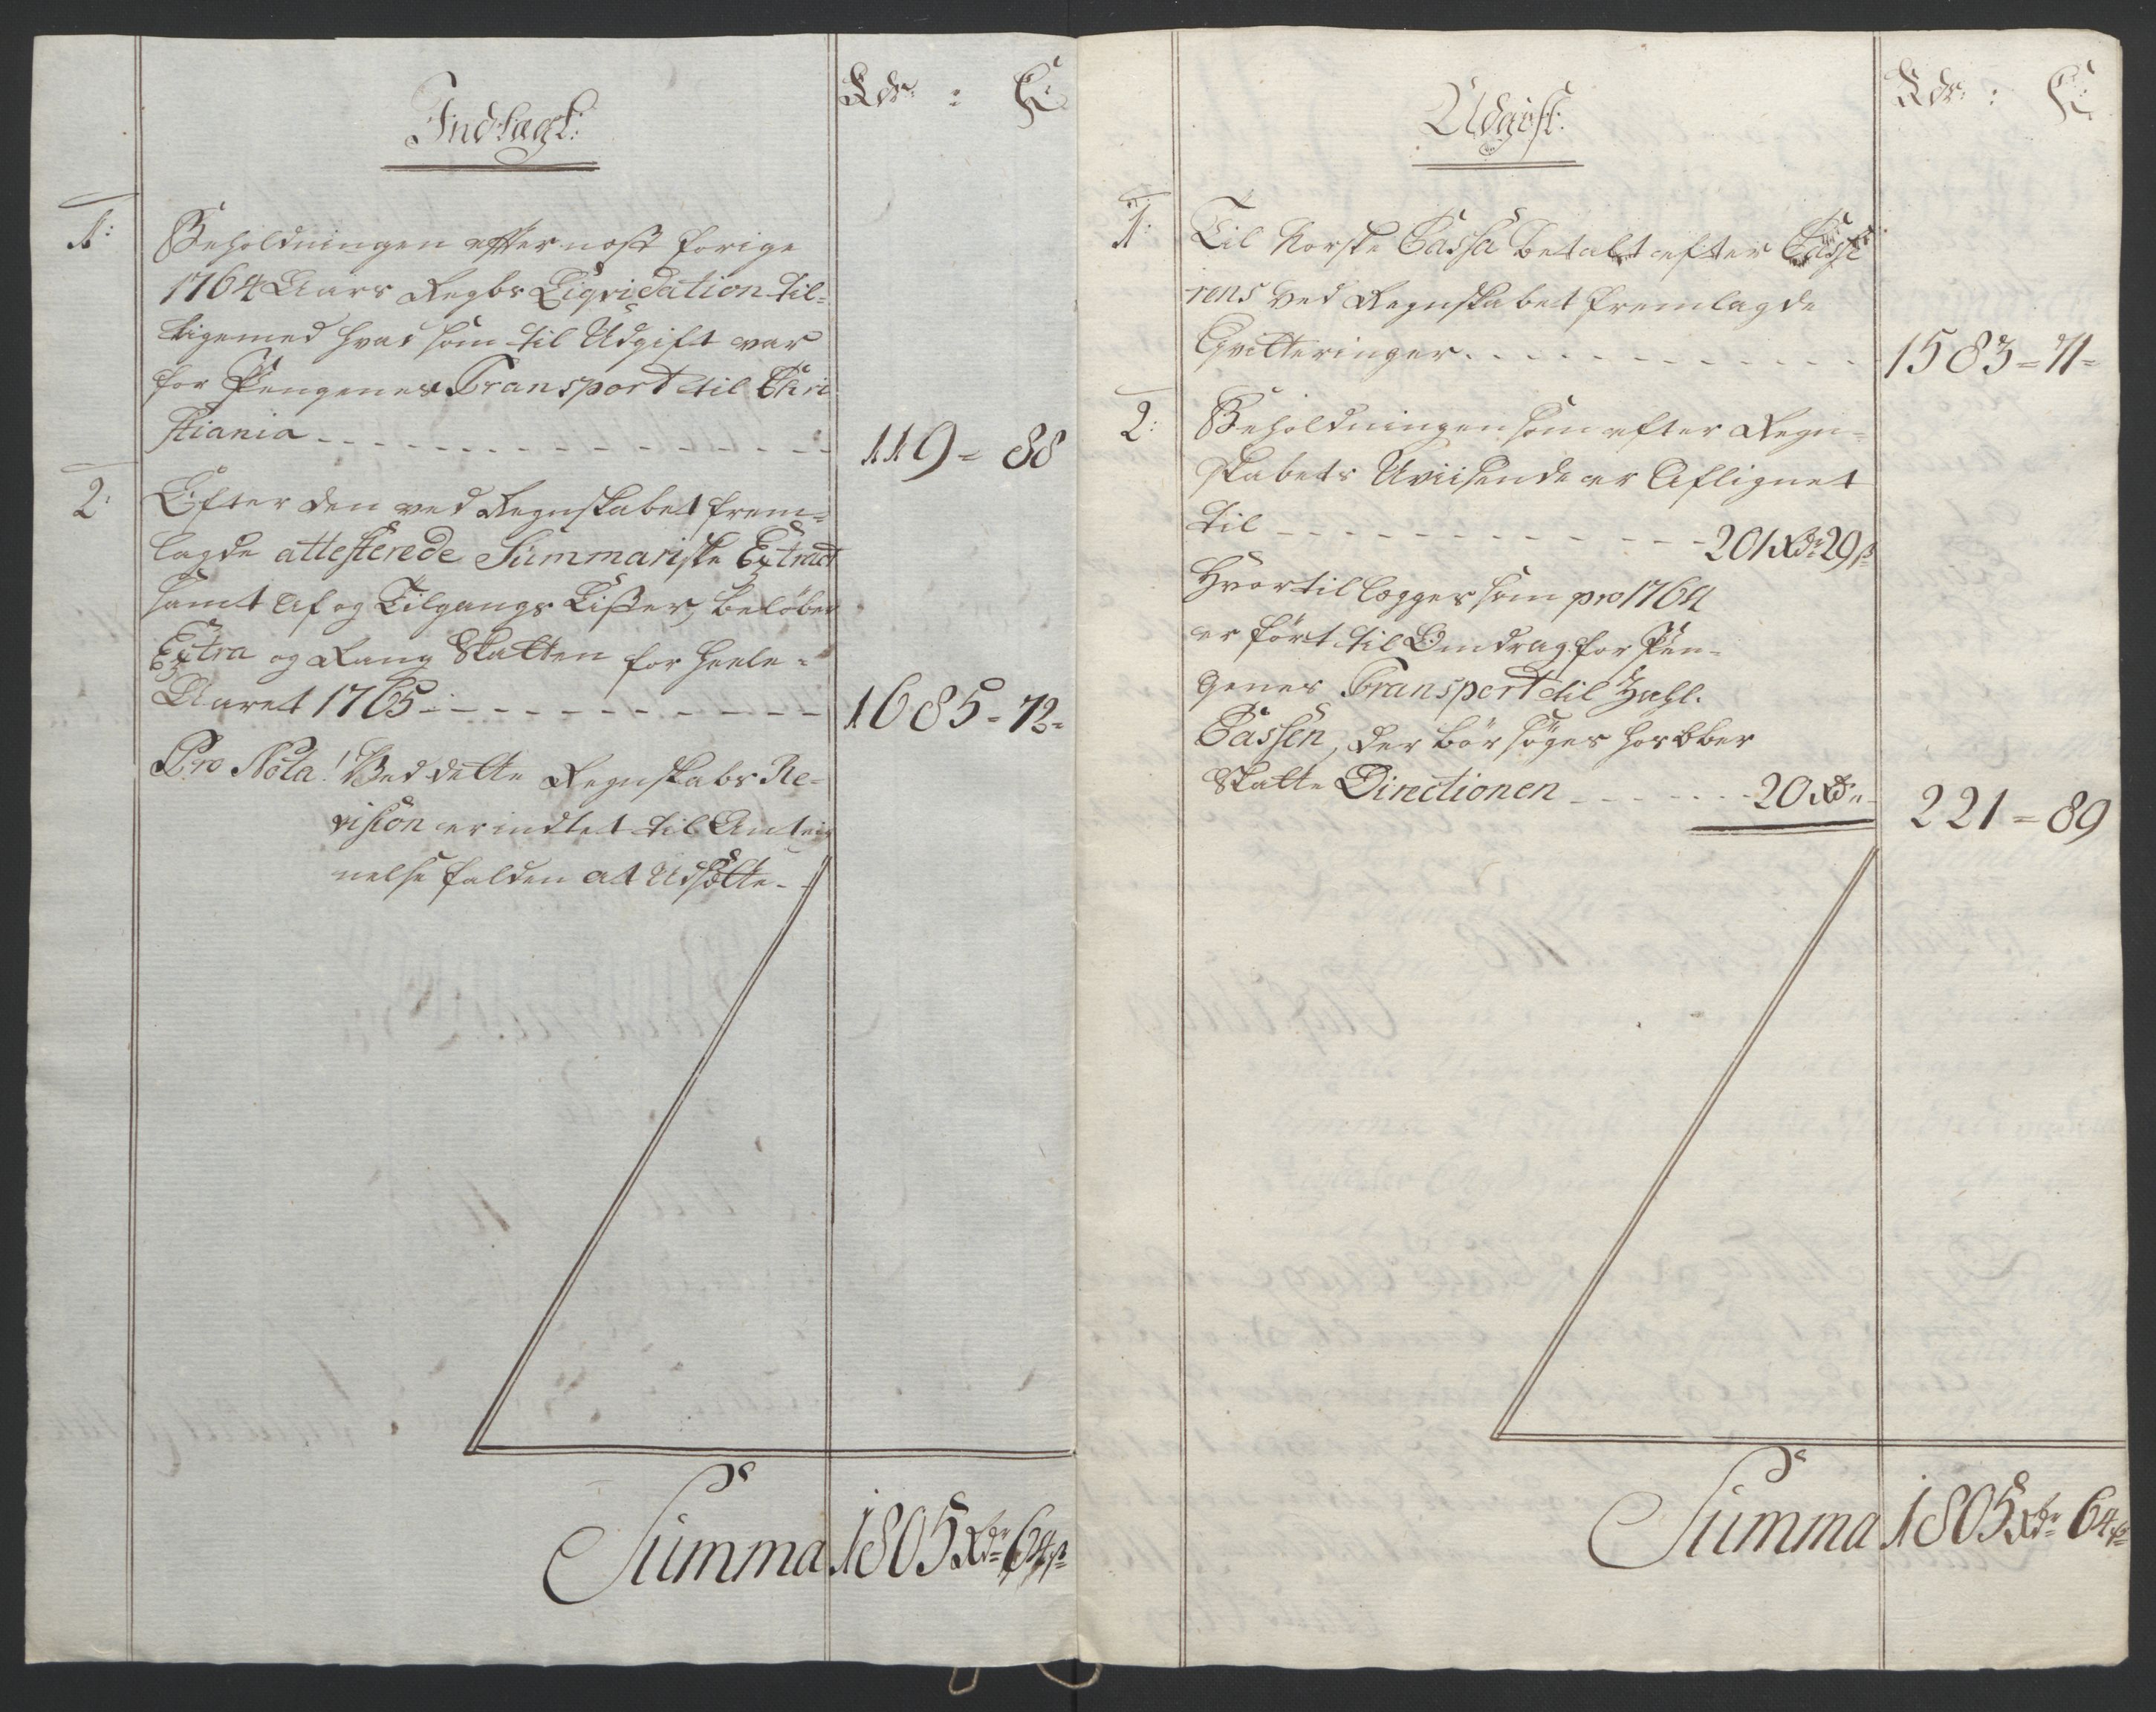 Indtægt:
Rdr: : ẞ:
1: Beholdningen efter nest forige
1764 Aars Regbs Liqvidation til-
ligemed hvad som til Udgift var
for Pengenes Transport til Chri
stiania - - - 119 = 88
2: Efter den ved Regnskabet frem-
lagde attesterede Summariske Extract
samt Af og Tilgangs Lister, beløber
Extra og Rang Skatten for heele
Aaret 1765 - - - 1685 = 72=
Pro Nota! Ved dette Regnskabs Re-
vision er indtet til Anteig
nelse falden at Udsætte.
Summa 1805 Rdr 64 ß
Udgift:
Rdr: : ẞ:
1: Til Norske Cassa betalt efter Casse
rens ved Regnskabet fremlagde
Qvitteringer - - - 1583 = 71=
2: Beholdningen som efter Regn-
skabets Uviisende er Aflignet
til - - - 201 Rdr 29 ß
Hvortil lægges som pro 1764
er ført til Omdrag for Pen-
genes Transport til Zahl.
Cassen, der bør søges hos Ober
Skatte Directionen - - - 20 Rdr " 221 = 89
Summa 1805 Rdr 64 ß